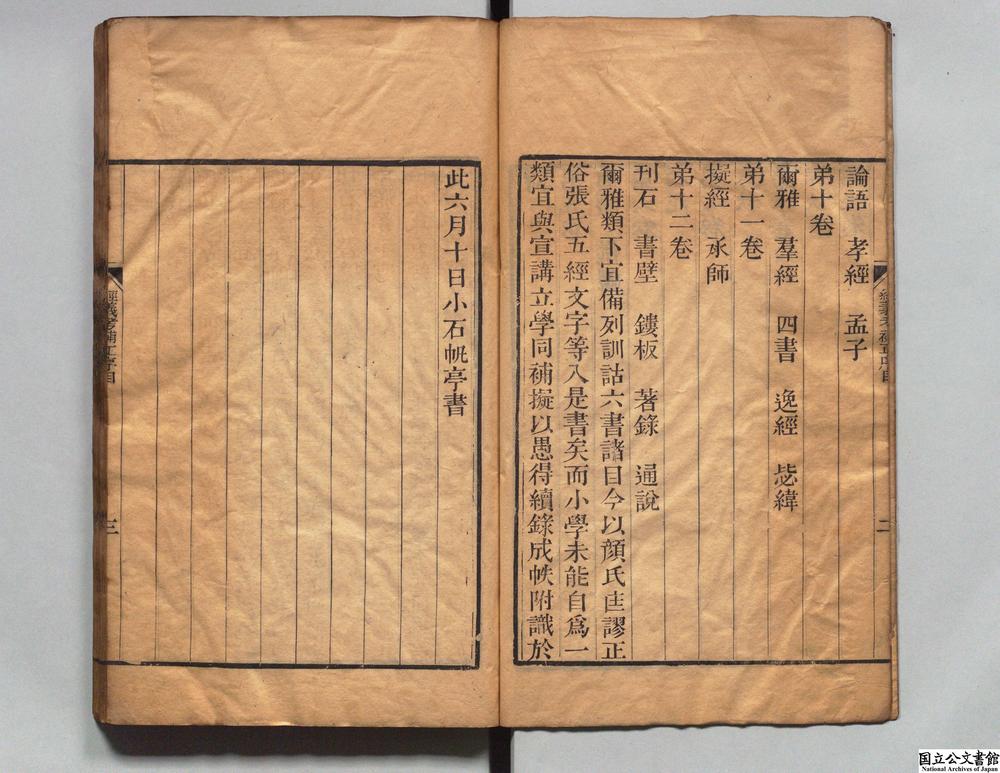 論語　孝經　孟子
弟十卷
爾雅　羣經　四書　逸經　毖緯
弟十一卷
擬經　承師
弟十二卷
刊石　書壁　鏤板　著錄　通說
爾雅類下宜備列訓詁六書諸目今以顏氏匡謬正
俗張氏五經文字等入是書矣而小學未能自爲一
類宜與宣講立學同補擬以愚得續錄成帙附識於
經義考補正序目
二
此六月十日小石帆亭書
經義考補正序目
三
国立公文書館
National Archives of Japan